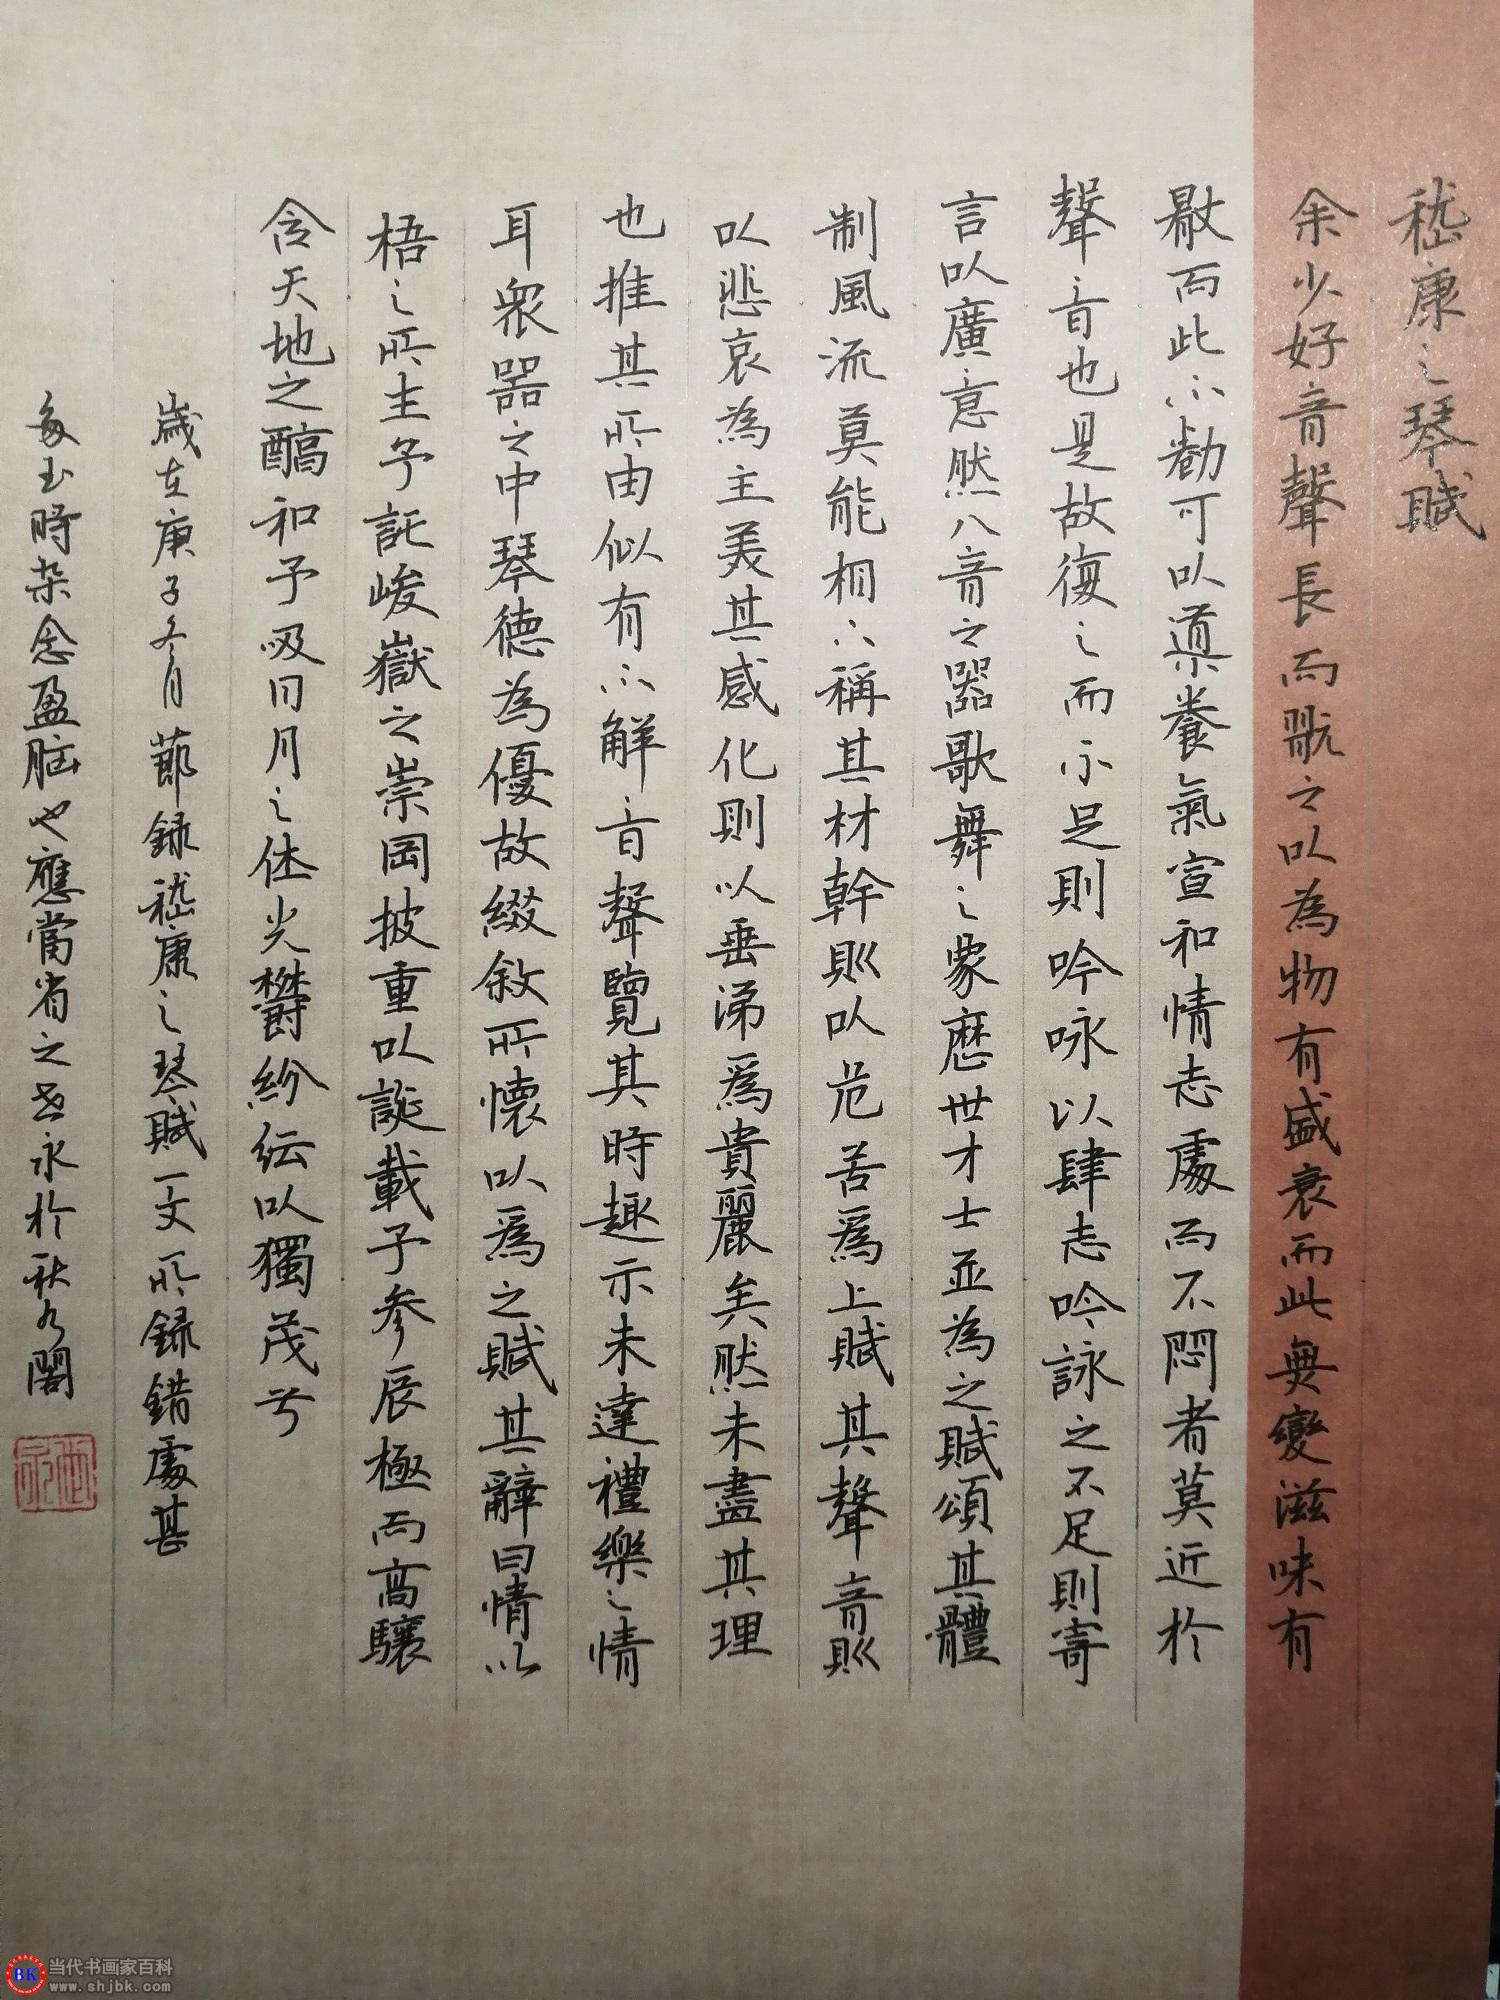 嵇康之琴賦
余少好音聲長而翫之以為物有盛衰而此無變滋味有
厭而此不勌可以導養氣宣和情志處而不悶者莫近於
聲音也是故復之而不足則吟咏以肆志吟詠之不足則寄
言以廣意然八音之器歌舞之象歷世才士並為之賦頌其體
制風流莫能相不稱其材幹則以危苦為上賦其聲音則
以悲哀為主美其感化則以垂涕為貴麗矣然未盡其理
也推其所由似有不解音聲覽其時趣示未達禮樂之情
耳衆器之中琴德為優故綴敘所懷以為之賦其辭曰情以
梧之所生予託峻嶽之崇岡披重以誕載予參辰極而高驤
含天地之醕和予吸日月之休光鬱紛紜以獨茂兮
歲在庚子冬月節録嵇康之琴賦一文所録錯處甚
多書時杂念盈脑也應當省之世永於秋水閣
当代书画家百科
www.shjbk.com
BK